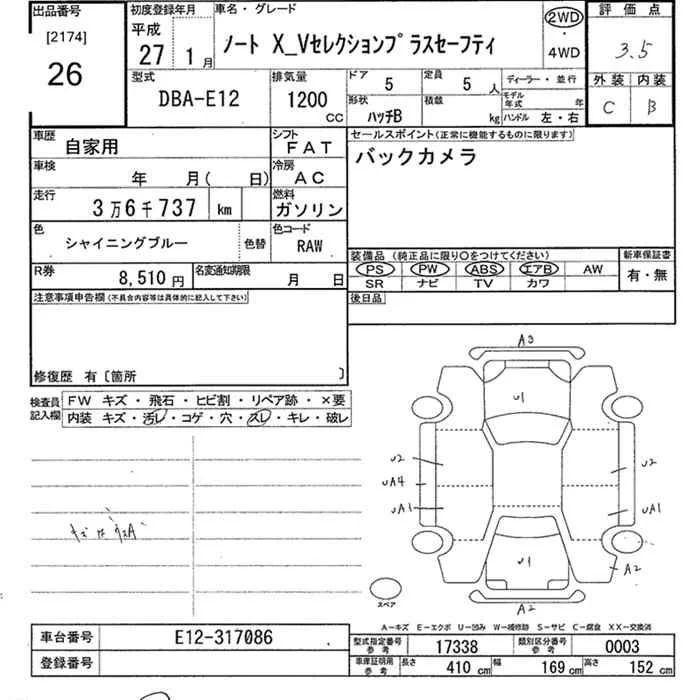 出品番号
[2174]
26
初度登録年月
平成
27 1月
車名・グレード
ノート X_Vセレクションプラスセーフティ
2WD
・
4WD
評価点
3.5
外装 内装
C B
型式
DBA-E12
排気量
1200
CC
ドア
5
定員
5人
ディーラー・並行
形状
ハッチB
積載
kg
モデル年式
年
ハンドル 左・右
車歴
自家用
シフト
FAT
車検
年 月( 日)
冷房
AC
走行
3万6千737 km
燃料
ガソリン
色
シャイニングブルー
色替
色コード
RAW
R券
8,510円
名変通知期限
月 日
セールスポイント(正常に機能するものに限ります)
バックカメラ
装備品(純正品に限り○をつけてください)
新車保証書
PS PW ABS エアB AW
有・無
SR ナビ TV カワ
後日品
注意事項申告欄(不具合内容等は具体的に記入して下さい)
修復歴 有〔箇所 〕
検査員
記入欄
FW キズ・飛石・ヒビ割・リペア跡・×要
内装 キズ・汚レ・コゲ・穴・スレ・キレ・破レ
A3
U1
U2
U2
UA4
UA1
UA1
U1
A2
A2
スペア
A−キズ E−エクボ U−凹み W−補修跡 S−サビ C−腐食 XX−交換済
車台番号
E12-317086
登録番号
型式指定番号
参考
17338
類別区分番号
参考
0003
車庫証明用
参考
長さ
410 cm
幅
169 cm
高さ
152 cm